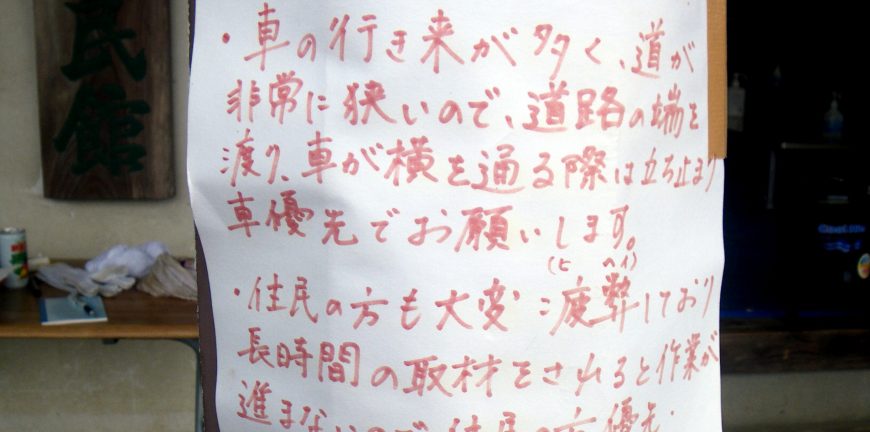 民館
・車の行き来が多く、道が
非常に狭いので、道路の端を
渡り、車が横を通る際は立ち止まり
車優先でお願いします。
(ヒ ヘイ)
・住民の方も大変ニ疲弊しており
長時間の取材をされると作業が
進まないので、住民の方優先